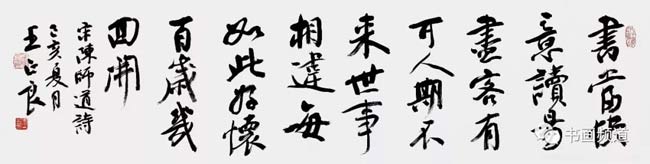 書當快
意讀易
盡客有
可人期不
来世事
相違每
如此好懷
百歲幾
回開
宋陳師道詩
己亥夏月
王正良
书画频道